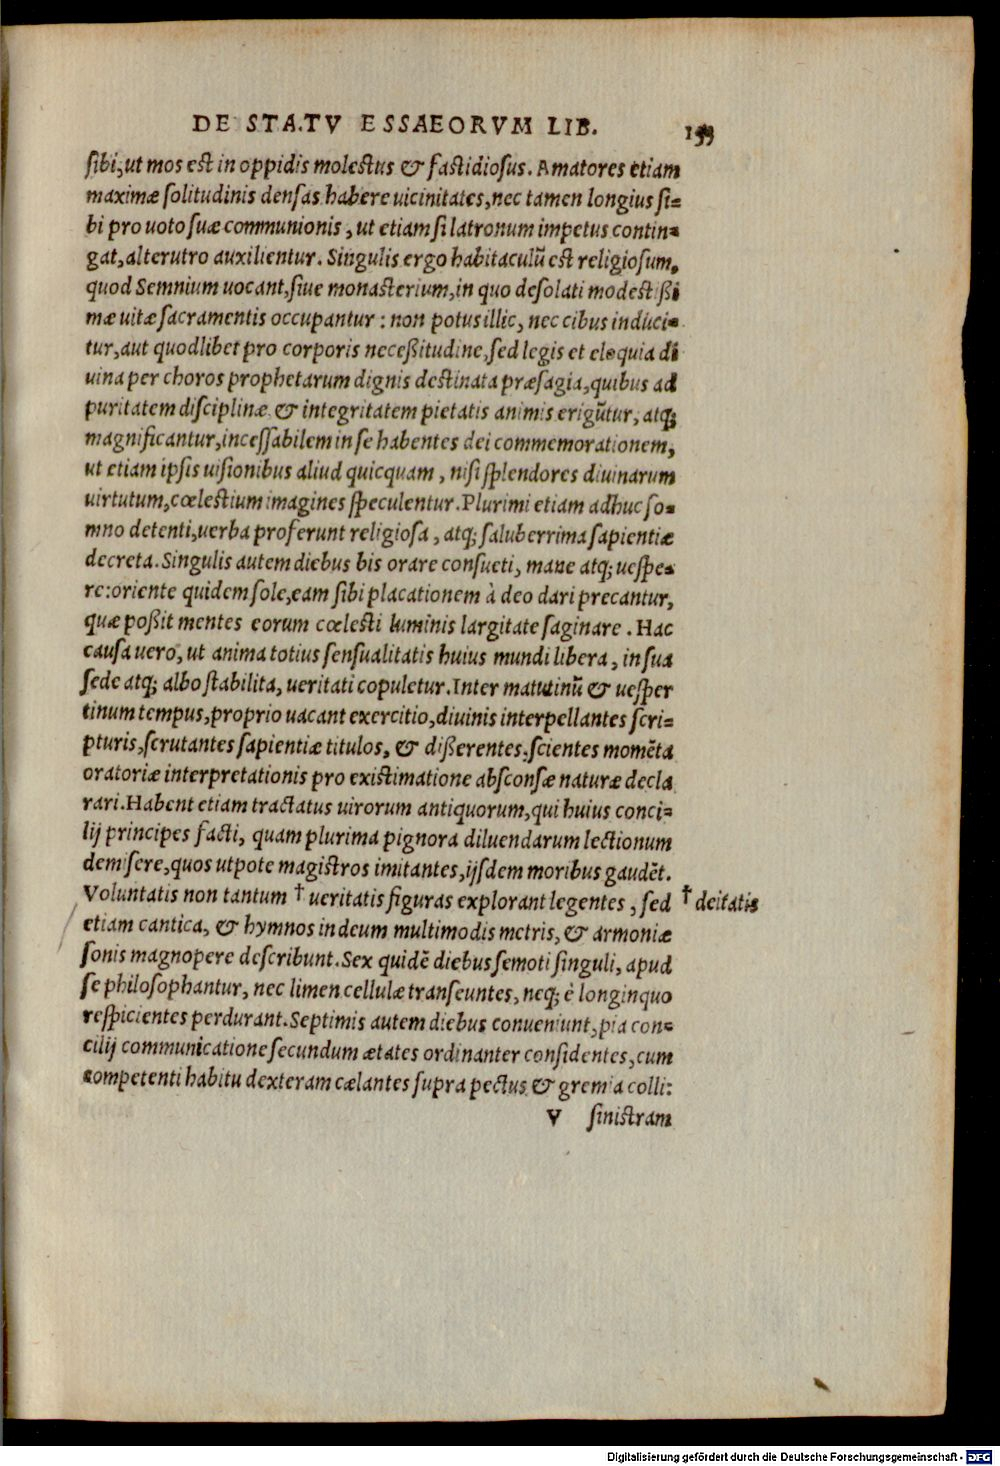 DE STATV ESSAEORVM LIB. 153
sibi, ut mos est in oppidis molestus & fastidiosus. Amatores etiam
maximæ solitudinis densas habere uicinitates, nec tamen longius si=
bi pro uoto suæ communionis, ut etiam si latronum impetus contin=
gat, alterutro auxilientur. Singulis ergo habitaculũ est religiosum,
quod Semnium uocant, siue monasterium, in quo desolati modestißi
mæ uitæ sacramentis occupantur: non potus illic, nec cibus induci=
tur, aut quodlibet pro corporis neceßitudine, sed legis et eloquia di
uina per choros prophetarum dignis destinata præsagia, quibus ad
puritatem disciplinæ & integritatem pietatis animis erigũtur, atq;
magnificantur, incessabilem in se habentes dei commemorationem,
ut etiam ipsis uisionibus aliud quicquam, nisi splendores diuinarum
uirtutum, cœlestium imagines speculentur. Plurimi etiam adhuc so=
mno detenti, uerba proferunt religiosa, atq; saluberrima sapientiæ
decreta. Singulis autem diebus bis orare consueti, mane atq; uespe=
re: oriente quidem sole, eam sibi placationem à deo dari precantur,
quæ poßit mentes eorum cœlesti luminis largitate saginare. Hac
causa uero, ut anima totius sensualitatis huius mundi libera, in sua
sede atq; albo stabilita, ueritati copuletur. Inter matutinũ & uesper
tinum tempus, proprio uacant exercitio, diuinis interpellantes scri=
pturis, scrutantes sapientiæ titulos, & dißerentes: scientes momẽta
oratoriæ interpretationis pro existimatione absconsæ naturæ decla
rari. Habent etiam tractatus uirorum antiquorum, qui huius conci=
lij principes facti, quam plurima pignora diluendarum lectionum
demisere, quos utpote magistros imitantes, ijsdem moribus gaudẽt.
Voluntatis non tantum † ueritatis figuras explorant legentes, sed † deitatis
etiam cantica, & hymnos in deum multimodis metris, & armoniæ
sonis magnopere describunt. Sex quidẽ diebus semoti singuli, apud
se philosophantur, nec limen cellulæ transeuntes, neq; è longinquo
respicientes perdurant. Septimis autem diebus conueniunt, pia con=
cilij communicatione secundum ætates ordinanter considentes, cum
competenti habitu dexteram cælantes supra pectus & gremia colli:
V sinistram
Digitalisierung gefördert durch die Deutsche Forschungsgemeinschaft - DFG